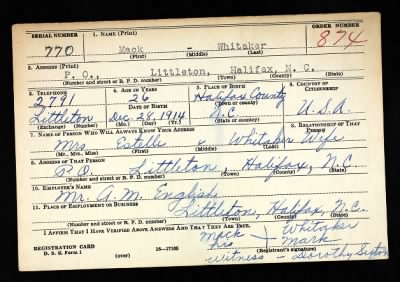 SERIAL NUMBER
1. NAME (Print)
ORDER NUMBER
770
Mack - Whitaker
874
(First) (Middle) (Last)
2. ADDRESS (Print)
P. O., Littleton, Halifax, N. C.
(Number and street or R. F. D. number) (Town) (County) (State)
3. TELEPHONE
4. AGE IN YEARS
5. PLACE OF BIRTH
6. COUNTRY OF CITIZENSHIP
2791
26
Halifax County
DATE OF BIRTH
(Town or county)
Littleton
Dec. 28, 1914
N.C.
U.S.A
(Exchange) (Number)
(Mo.) (Day) (Yr.)
(State or country)
7. NAME OF PERSON WHO WILL ALWAYS KNOW YOUR ADDRESS
8. RELATIONSHIP OF THAT PERSON
Mrs Estelle - Whitaker Wife
(Mr., Mrs., Miss) (First) (Middle) (Last)
9. ADDRESS OF THAT PERSON
P.O. Littleton, Halifax, N.C.
(Number and street or R. F. D. number) (Town) (County) (State)
10. EMPLOYER'S NAME
Mr. A. M. English
11. PLACE OF EMPLOYMENT OR BUSINESS
Littleton, Halifax, N.C.
(Number and street or R. F. D. number) (Town) (County) (State)
I AFFIRM THAT I HAVE VERIFIED ABOVE ANSWERS AND THAT THEY ARE TRUE.
Mack Whitaker
his Mark
REGISTRATION CARD
D. S. S. Form 1
(over)
16-17105
(Registrant's signature)
Witness - Dorothy